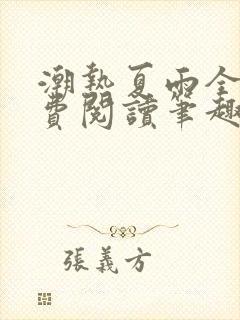 潮熱夏雨全
費閱讀筆趣
張義方